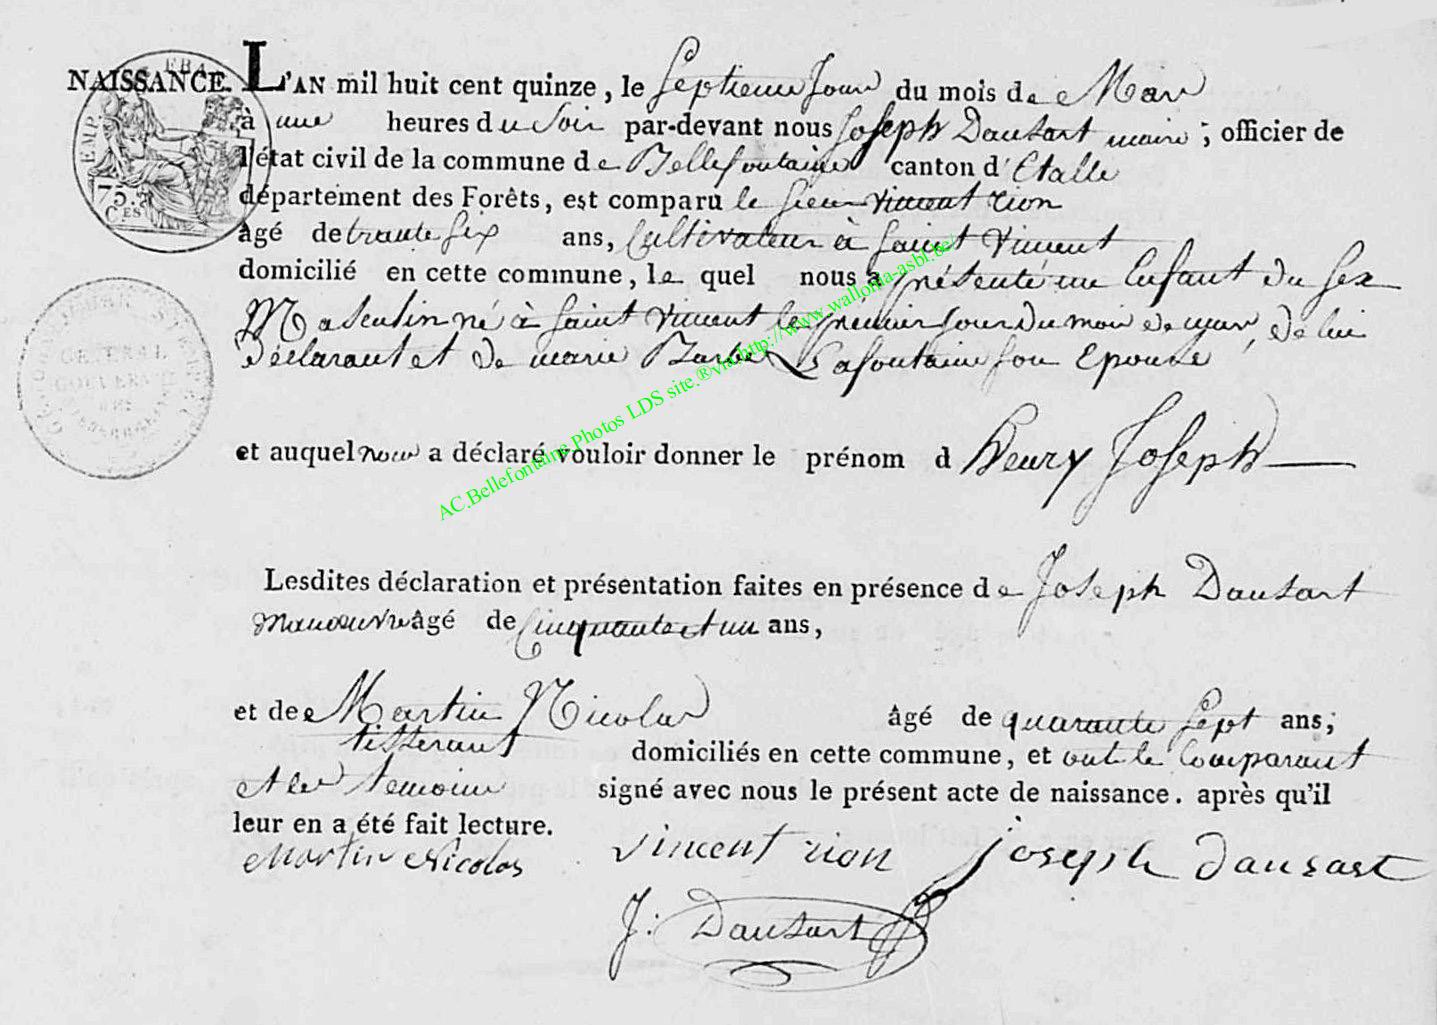 NAISSANCE. L'AN mil huit cent quinze, le Septieme Jour du mois de Mars
à une heures du Soir par-devant nous Joseph Dausart maire ; officier de
l'état civil de la commune de Bellefontaine canton d'Etalle
département des Forêts, est comparu le Sieur Vincent rion
âgé de trante Six ans, Cultivateur à Saint Vincent
domicilié en cette commune, le quel nous a présenté un Enfant du Sex
Masculin né à Saint Vincent le premier Jour du mois de mars, de lui
Déclarant et de marie Barbe Lafontaine Son Epouse
et auquel nous a déclaré vouloir donner le prénom d Henry Joseph
Lesdites déclaration et présentation faites en présence de Joseph Dausart
Manoeuvre âgé de Cinquante et un ans,
et de Martin Nicolas âgé de quarante Sept ans,
tisserant domiciliés en cette commune, et ont le Comparant
et les temoins signé avec nous le présent acte de naissance. après qu'il
leur en a été fait lecture.
Martin Nicolas vincent rion joseph dausart
J: Dausart
EMP
75.
CES
GENERAL
GOUVERN
AC.Bellefontaine Photos LDS site.®via http://www.wallonia-asbl.be/